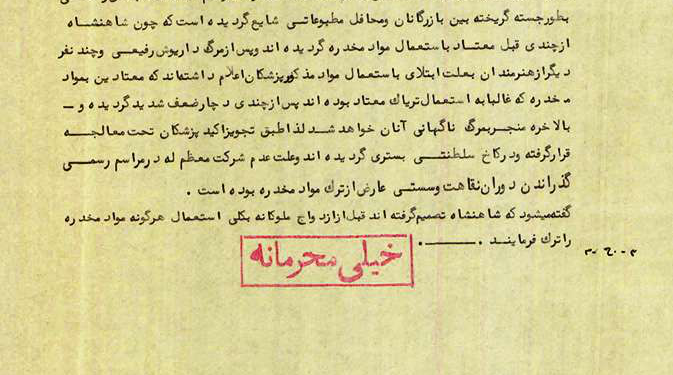 بطور جسته گریخته بین بازرگانان ومحافل مطبوعاتی شایع گردیده است که چون شاهنشاه
از چندی قبل معتاد باستعمال مواد مخدره گردیده اند وپس از مرگ داریوش رفیعی وچند نفر
دیگر از هنرمندان بعلت ابتلای باستعمال مواد مذکور پزشکان اعلام داشته اند که معتادین بمواد
مخدره که غالبا به استعمال تریاک معتاد بوده اند پس از چندی دچار ضعف شدید گردیده و -
بالاخره منجر بمرگ ناگهانی آنان خواهد شد لذا طبق تجویز اکید پزشکان تحت معالجه
قرار گرفته ودر کاخ سلطنتی بستری گردیده اند وعلت عدم شرکت معظم له در مراسم رسمی
گذراندن دوران نقاهت وسستی عارض از ترک مواد مخدره بوده است .
گفته میشود که شاهنشاه تصمیم گرفته اند قبل از ازدواج ملوکانه بکلی استعمال هرگونه مواد مخدره
را ترک فرمایند .ـــــــ.
خیلی محرمانه